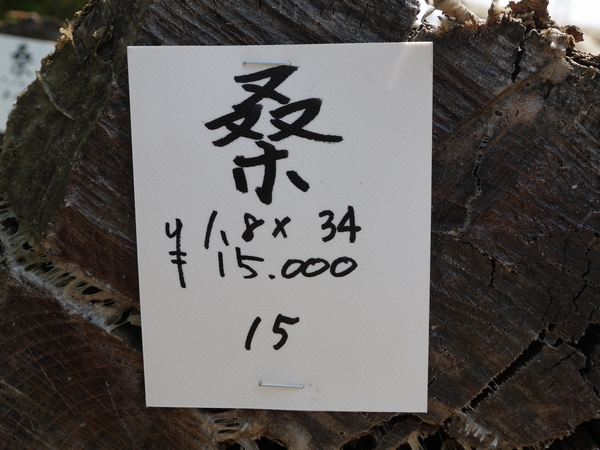 桑
1,8× 34
¥ 15.000
15